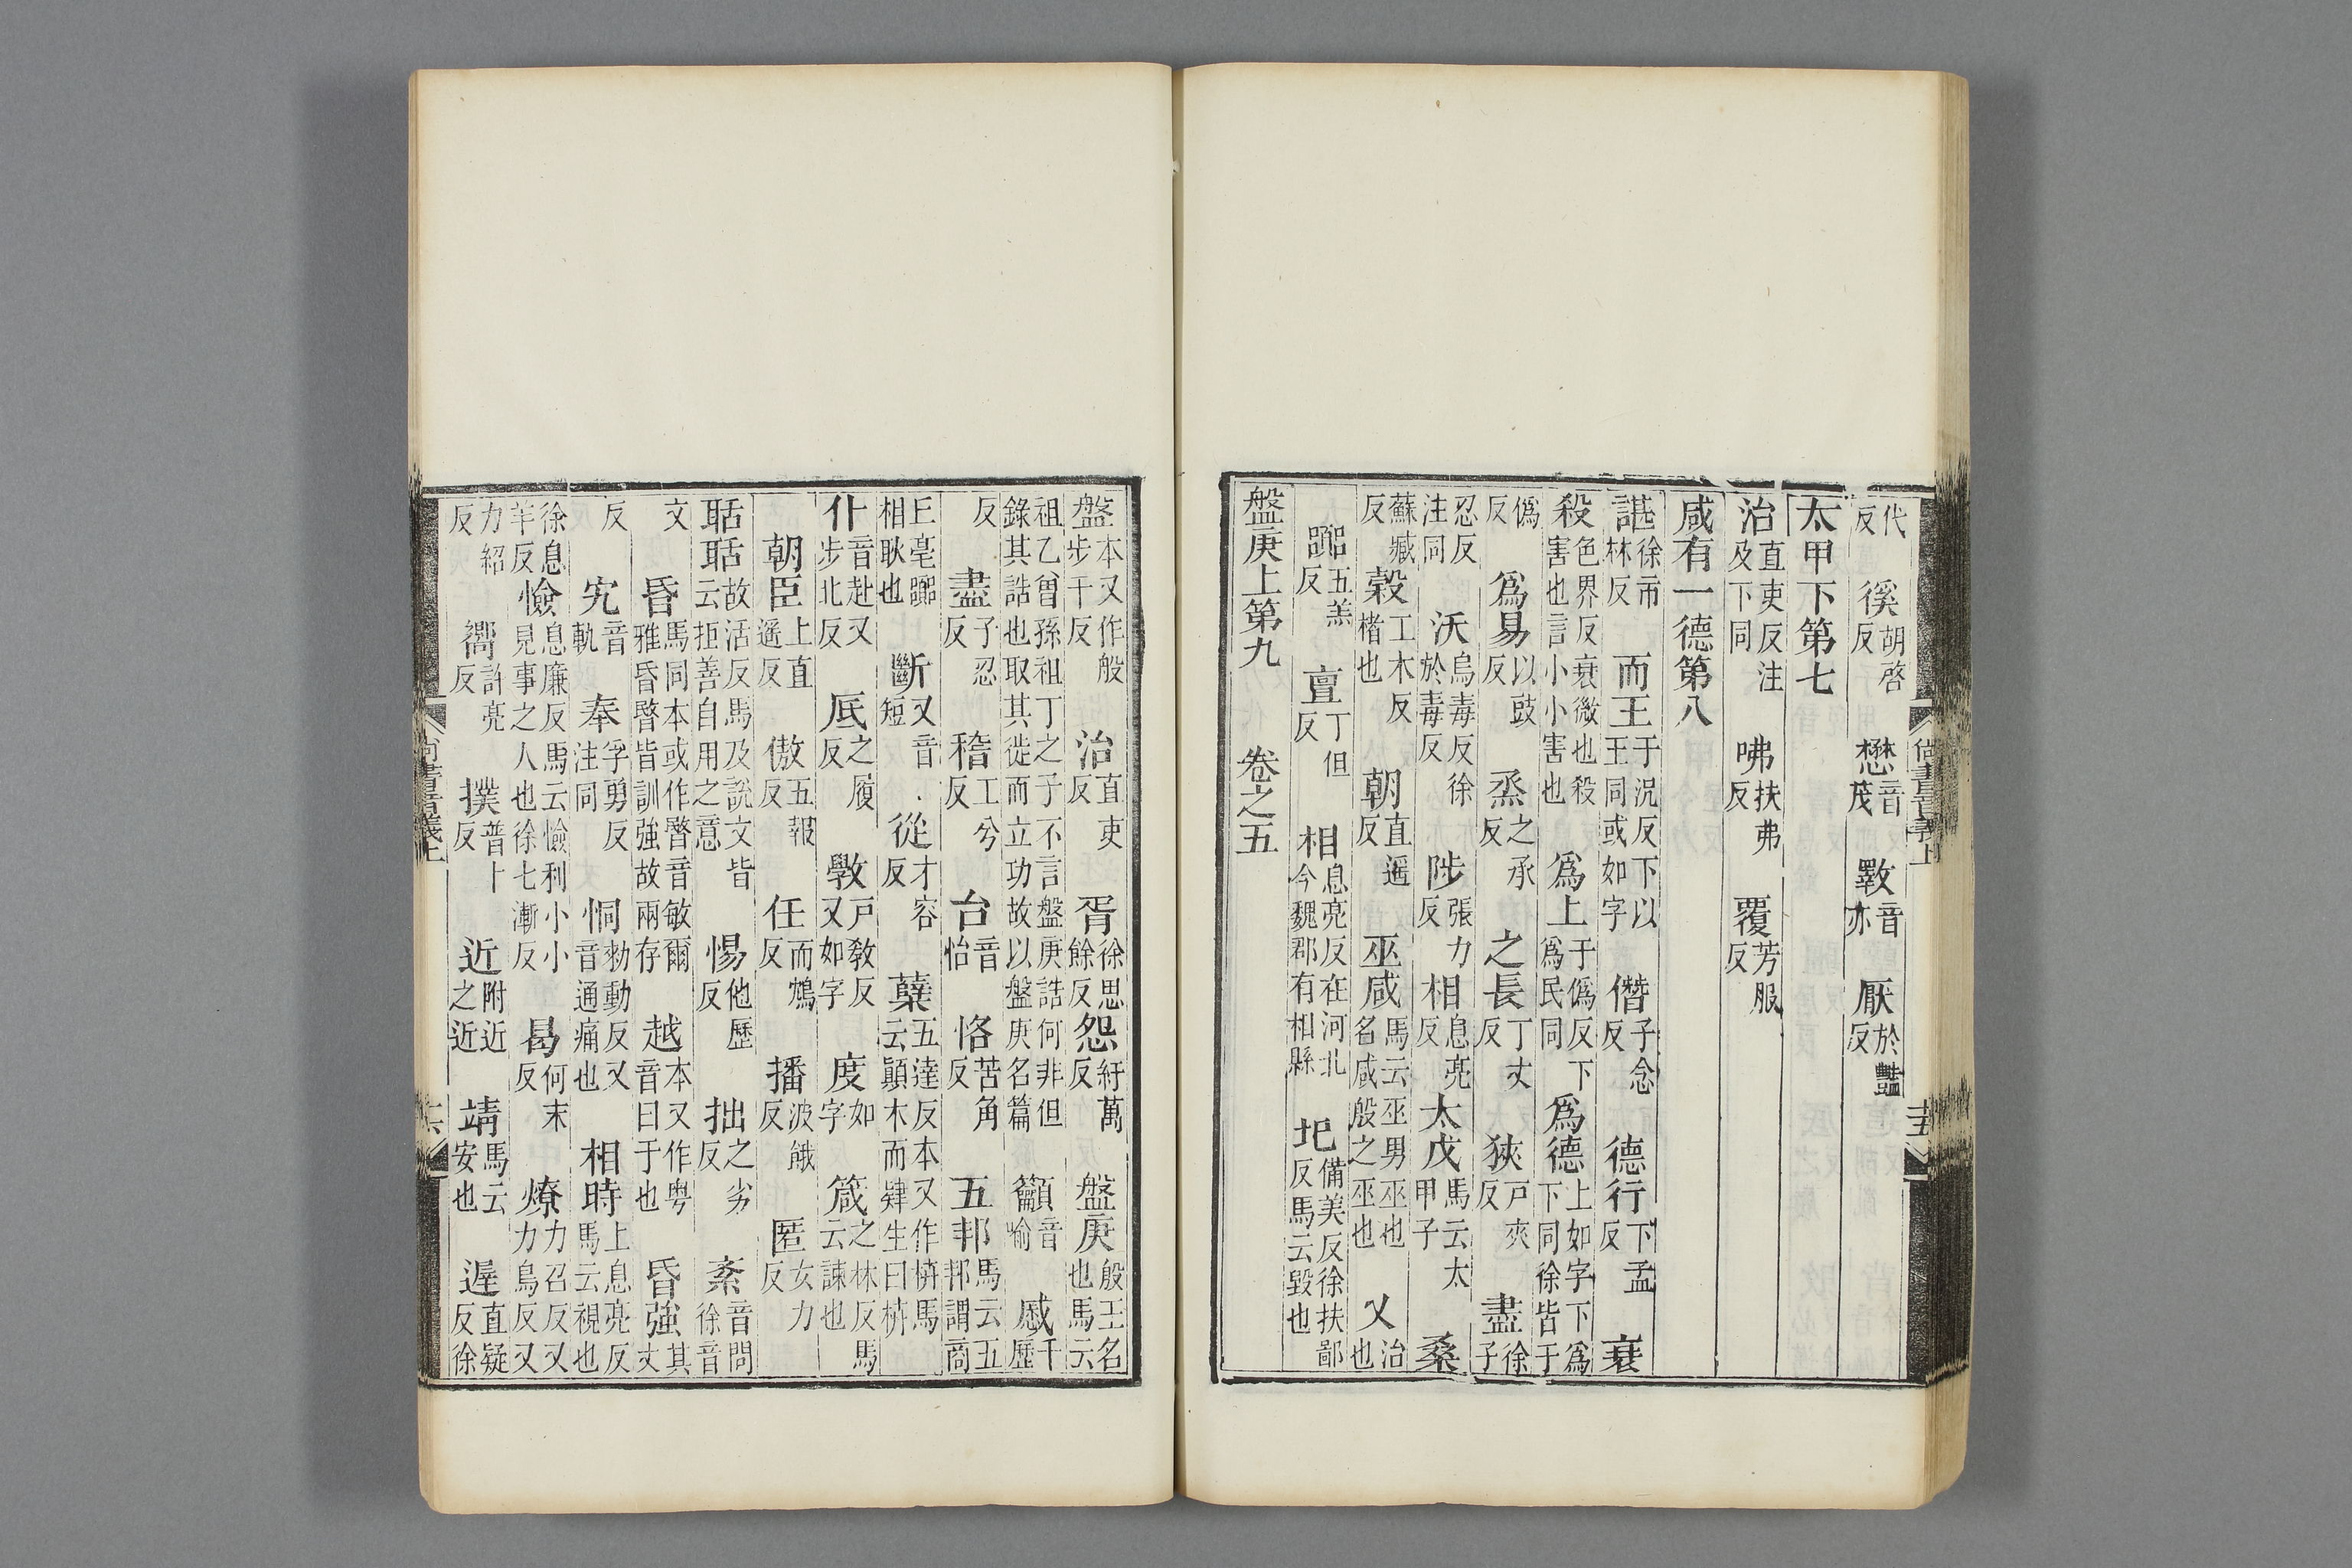 代反 徯胡啓反 懋音茂 斁音亦 厭於豔反
太甲下第七
治直吏反注及下同 咈扶弗反 覆芳服反
咸有一德第八
諶徐市林反 而王于況反下以王同或如字 僭子念反 德行下孟反 衰
殺色界反衰微也殺害也言小小害也 爲上于僞反下爲民同 爲德上如字下爲下同徐皆于
僞反 爲易以豉反 烝之承反 之長丁丈反 狹戶夾反 盡徐子
忍反注同 沃烏毒反徐於毒反 陟張力反 相息亮反 太戊馬云太甲子 桑
蘇臧反 榖工木反楮也 朝直遥反 巫咸馬云巫男巫也名咸殷之巫也 乂治也
嚻五羔反 亶丁但反 相息亮反在河北今魏郡有相縣 圯備美反徐扶鄙反馬云毀也
盤庚上第九 卷之五
尚書音義上
十五
盤本又作般步干反 治直吏反 胥徐思餘反 怨紆萬反 盤庚殷王名也馬云
祖乙曾孫祖丁之子不言盤庚誥何非但錄其誥也取其徙而立功故以盤庚名篇 籲音喻 慼千歷
反 盡子忍反 稽工兮反 台音怡 恪苦角反 五邦馬云五邦謂商
丘亳嚻相耿也 斷又音短 從才容反 蘖五達反本又作枿馬云顚木而肄生曰枿
仆音赴又步北反 厎之履反 斆戶敎反又如字 度如字 箴之林反馬云諫也
朝臣上直遥反 傲五報反 任而鴆反 播波餓反 匿女力反
聒聒故活反馬及說文皆云拒善自用之意 惕他歷反 拙之劣反 紊音問徐音
文 昏馬同本或作暋音敏爾雅昏暋皆訓強故兩存 越本又作粤音曰于也 昏強其丈
反 宄音軌 奉孚勇反注同 恫勑動反又音通痛也 相時上息亮反馬云視也
徐息羊反 憸息廉反馬云憸利小小見事之人也徐七漸反 曷何末反 燎力召反又力鳥反又
力紹反 嚮許亮反 撲普卜反 近附近之近 靖馬云安也 遲直疑反徐
尚書音義上
十六